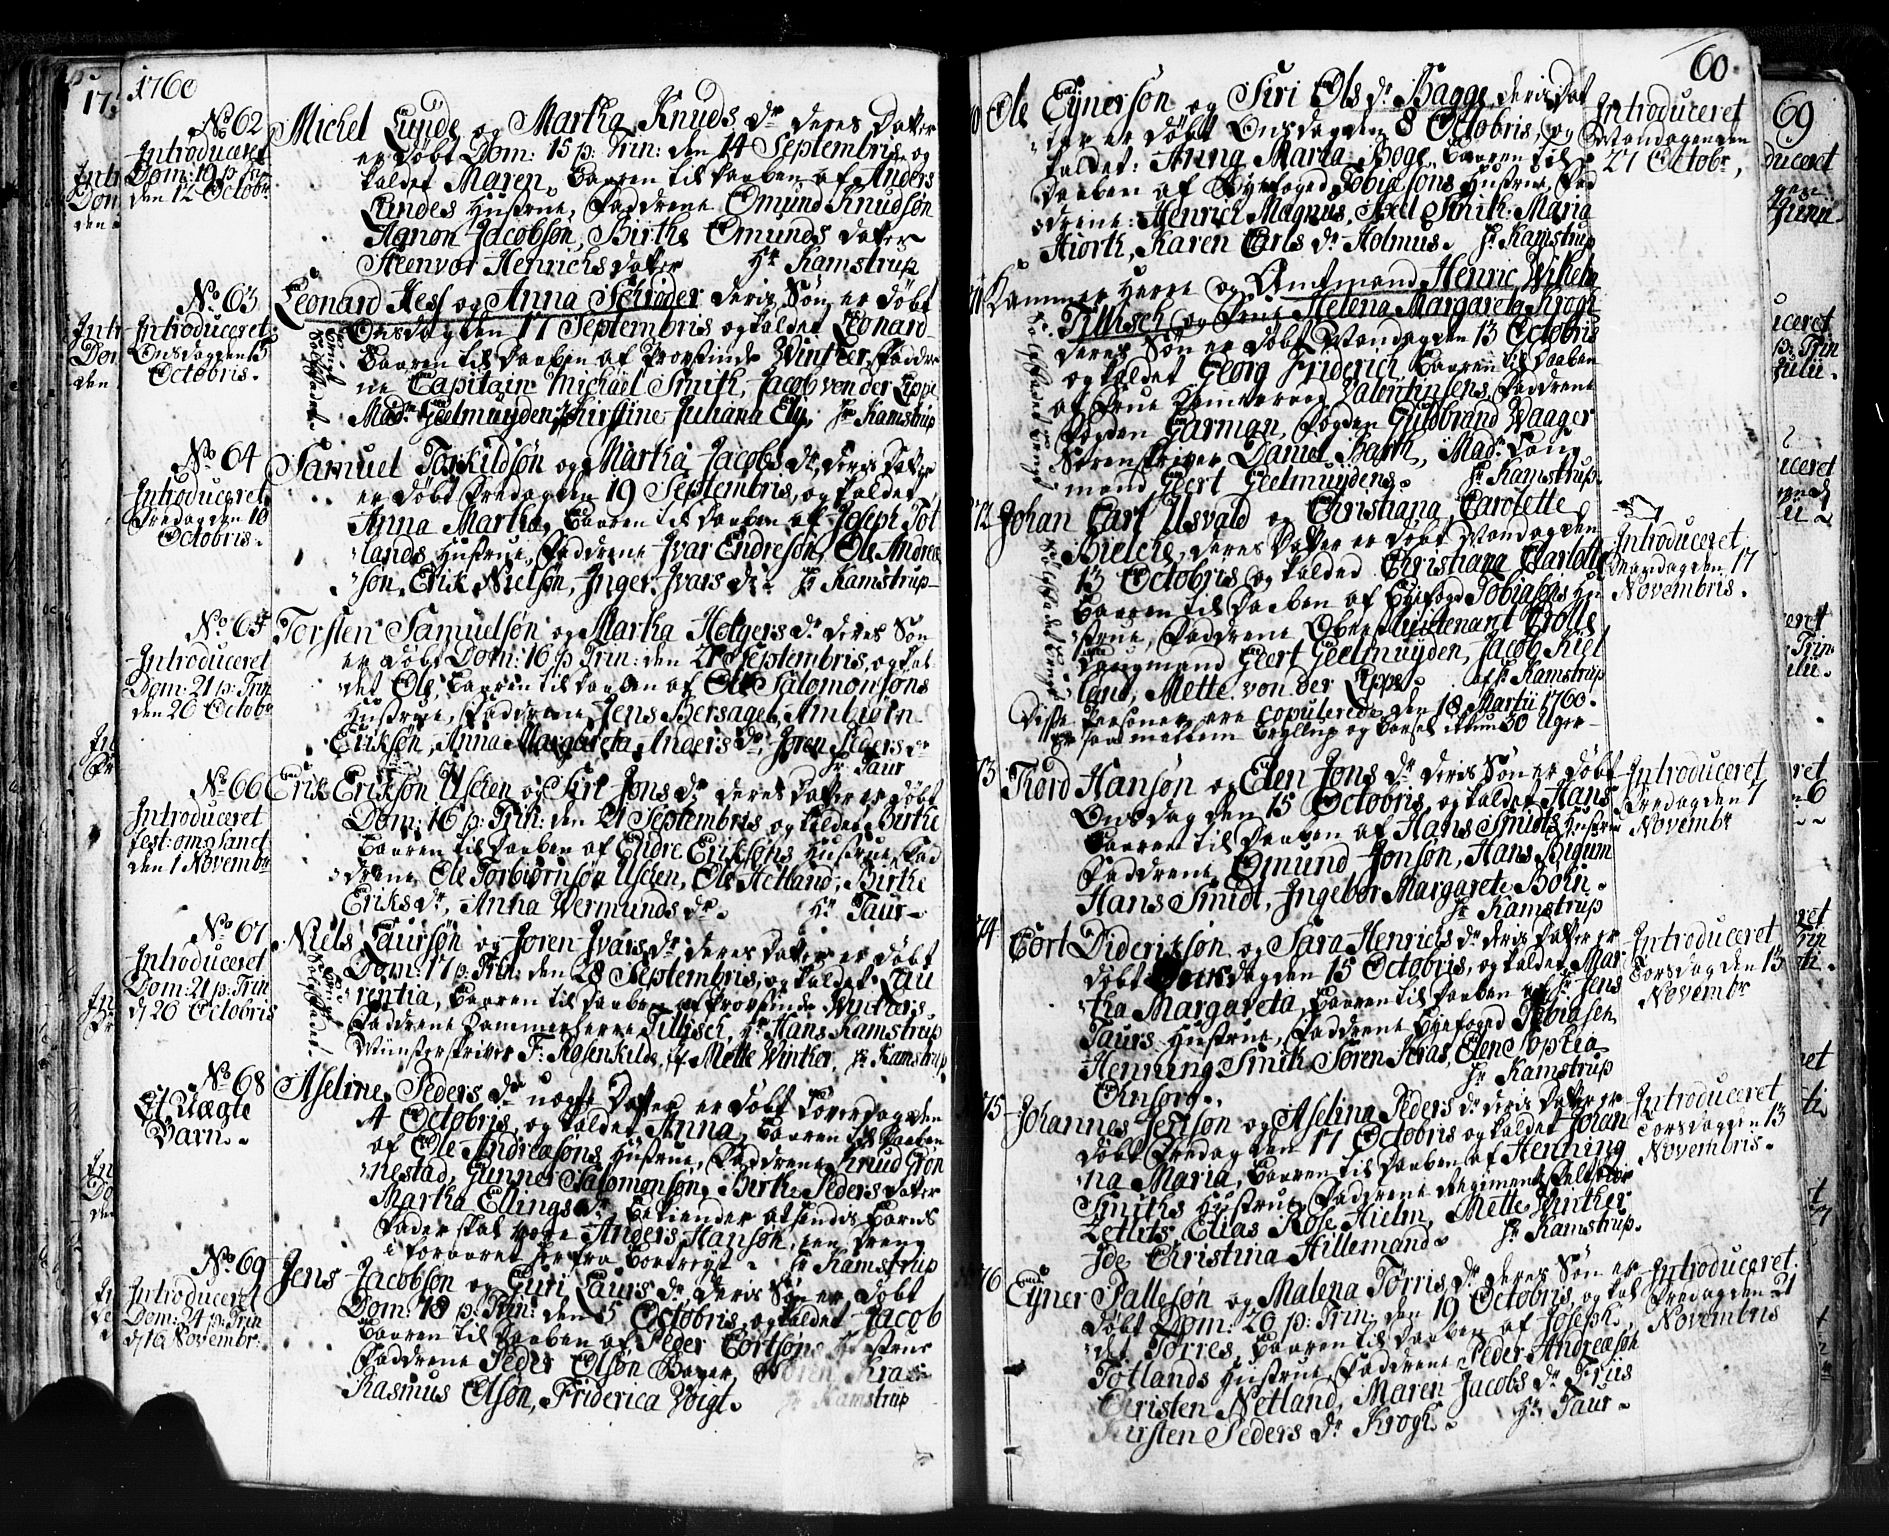 1760
No 62
Introduceret
Dom: 19 p: Trin
den 12 Octobr
Michel Lunde og Martha Knuds dr deres Datter
er døbt Dom: 15 p: Trin: den 14 Septembris og
kaldet Maren. Baaren til Daaben af Anders
Lundes Hustrue, Faddrene Omund Knudsøn
Hognon Jacobsøn, Birthe Omunds Datter
Steenvor Henrichs Datter Hr Kamstrup
No 63
Introduceret
Onsdag den 15
Octobris.
Leonard Hess og Anna Schrøder deris Søn er døbt
Onsdag den 17 Septembris og kaldet Leonard
Baaren til Daaben af Provstinde Winther, Faddre
ne Capitain Michael Smith, Jacob von der Lippe
Madme Geelmuyden, Kirstine Juliana Ely. Hr Kamstrup
No 64
Introduceret
Fredag den 10
Octobris.
Samuel Torkildsøn og Martha Jacobs dr, deris Datter
er døbt Fredag den 19 Septembris, og kaldet
Anna Martha, Baaren til Daaben af Joseph Tot
lands Hustrue, Faddrene Ivar Endresøn, Ole Andrea
søn, Erik Nielsøn, Inger Ivars dr. Hr Kamstrup
No 65
Introduceret
Dom: 21 p: Trin
den 26 Octobr
Torsten Samuelsøn og Martha Holgers dr deres Søn
er døbt Dom: 16 p Trin: den 21 Septembris, og kal
det Ole, Baaren til Daaben af Ole Salomonsøns
Hustrue, Faddrene Jens Bersagel, Ambiørn
Eriksøn, Anna Margareta Anders dr, Joren Peders dr
Hr Taur
No 66
Introduceret
fest: om: Sanct
den 1 Novembr
Erik Eriksøn Uscken og Siri Jons dr deres Datter er døbt
Dom: 16 p: Trin: den 21 Septembris og kaldet Birthe
Baaren til Daaben af Endre Eriksøns Hustrue, Fad
drene Ole Torbiørnsøn Uscken, Ole Hetland, Birthe
Eriks dr, Anna Vermunds dr. Hr Taur
No 67
Introduceret
Dom: 21 p: Trin
d 26 Octobris
Niels Laursøn og Joren Ivars dr deres Datter er døbt
Dom: 17 p: Trin: den 28 Septembris, og kaldet Lau
rentia, Baaren til Daaben af Provstinde Winthers
Faddrene Cammerherre Tillisch, Hr Hans Kamstrup
Münsterskriver F: Rosenkilde, Mette Winther. Hr Kamstrup
No 68
Et Uægte
Barn.
Aseline Peders dr uægte Datter er døbt Løverdag den
4 Octobris, og kaldet Anna, Baaren til Daaben
af Ole Andreasøns Hustrue, Faddrene Knud Grøn
nestad, Gunner Salomonsøn, Birthe Peders Datter
Martha Ellings dr. Bekiender at hendis Barns
Fader skal være Anders Hansøn, een Dreng
i foraaret herfra bortreyst. Hr Kamstrup
No 69
Introduceret
Dom: 24 p: Trin
d 16 Novembr.
Jens Jacobsøn og Guri Laurs dr. deris Søn er døbt
Dom: 18 p: Trin: den 5 Octobris, og kaldet Jacob
Baaren til Daaben af Peder Cortsøns Hustrue
Faddrene Peder Olsøn Bager, Søren Kras
Rasmus Olsøn, Friderica Voigt. Hr Kamstrup
60
Ole Eynersøn og Siri Ols dr Bagge deris Dat
ter er døbt Onsdag den 8 Octobris, og
kaldet: Anna Maria Boge. Baaren til
Daaben af Byefoged Tobiesøns Hustrue, Fad
drene: Henrich Magnus, Axel Smith: Maria
Hiorth, Karen Carls dr Holmus. Hr Kamstrup
Introduceret
Mandagen den
27 Octobr,
Kammer Herre og Amtmand Henric Wilhelm
Tillisch og Frue Helena Margareta Krogh
deres Søn er døbt Mandag den 13 Octobris
og kaldet Georg Friderich, Baaren til Daaben
af Frue Valentinsens, Faddrene
Fogden Garman, Fogden Guldbrand Waager
Sorenskriver Daniel Barth, Madme Laug
mand Geert Geelmuydens. Hr Kamstrup.
72 Johan Carl Usvald og Christiana Carolette
Bielche, deres Datter er døbt Mandag den
13 Octobris og kaldet Christiana Charlotte
Baaren til Daaben af Byefoged Tobiasøns Hu
strue, Faddrene Oberstlieutenant Trolle
Laugmand Geert Geelmuyden, Jacob Kiel
land, Mette von der Lippe. af Hr Kamstrup
Disse Personer ere copulerede den 18 Martii 1760.
er saa mellem Bryllup og Barsel ikkun 30 Uger
Introduceret
Mandag den 17
Novembris.
73 Tiord Hansøn og Elen Jons dr deris Søn er døbt
Onsdag den 15 Octobris, og kaldet Hans
Baaren til Daaben af Hans Smidts Hustrue
Faddrene Omund Jonsøn, Hans Bigum
Hans Smidt, Ingebor Margarete Bohn.
Hr Kamstrup
Introduceret
Fredag den 7
Novembr
74 Cort Dideriksøn og Sara Henrichs dr deris Datter er
døbt Onsdag den 15 Octobris, og kaldet Mar
tha Margareta, Baaren til Daaben af Hr Jens
Taurs Hustrue, Faddrene Byefoged Tobiasen
Henning Smith, Søren Kras, Elen Sophia
Ohnsorg. Hr Kamstrup
Introduceret
Torsdag den 13
Novembr
75 Johannes Jensøn og Aselina Peders dr deris Datter er
døbt Fredag den 17 Octobris og kaldet Johan
na Maria, Baaren til Daaben af Henning
Smiths Hustrue, Faddrene Regiments Feltskiær
Zetlitz, Elias Rose Hielm, Mette Winther
Ide Christina Hillemand. Hr Kamstrup.
Introduceret
Torsdag den 13
Novembris.
76 Eyner Pallesøn og Malena Torris dr deres Søn er
døbt Dom: 20 p: Trin, den 19 Octobris, og kal
det Torres, Baaren til Daaben af Joseph
Totlands Hustrue, Faddrene Peder Andreasøn
Christen Netland, Maren Jacobs dr Friis
Kirsten Peders dr Krogh. Hr Taur
Introduceret
Fredag den 21
Novembris
69